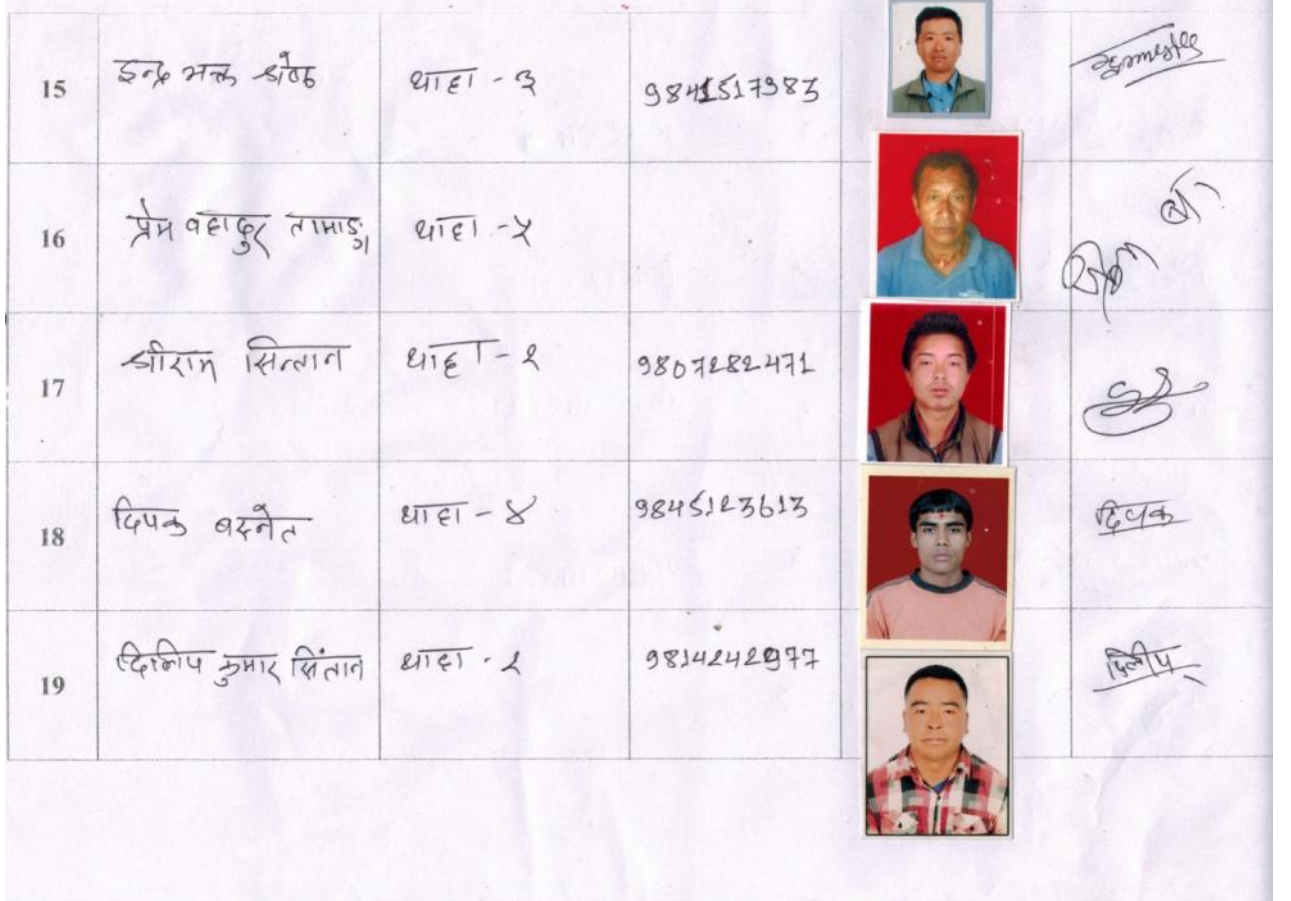 15 इन्द्र भक्त श्रेष्ठ थाहा - ३ 9841517983
16 प्रेम वहादुर तामाङ्ग थाहा - ५
17 श्रीराम सिन्तान थाहा - १ 9807282471
18 दिपक बस्नेत थाहा - ४ 9845123613 दिपक
19 दिलिप कुमार सिंतान थाहा - १ 9814242977 दिलीप